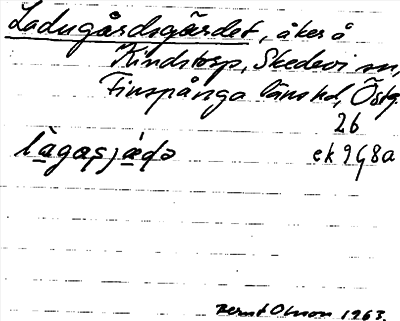 Ladugårdsgärdet, åker å
Kindstorp, Skedevi sn,
Finspånga läns hd, Östg.
26
làgaşjæ̀ḍə ek 9G8a
Bernt Olsson 1963.